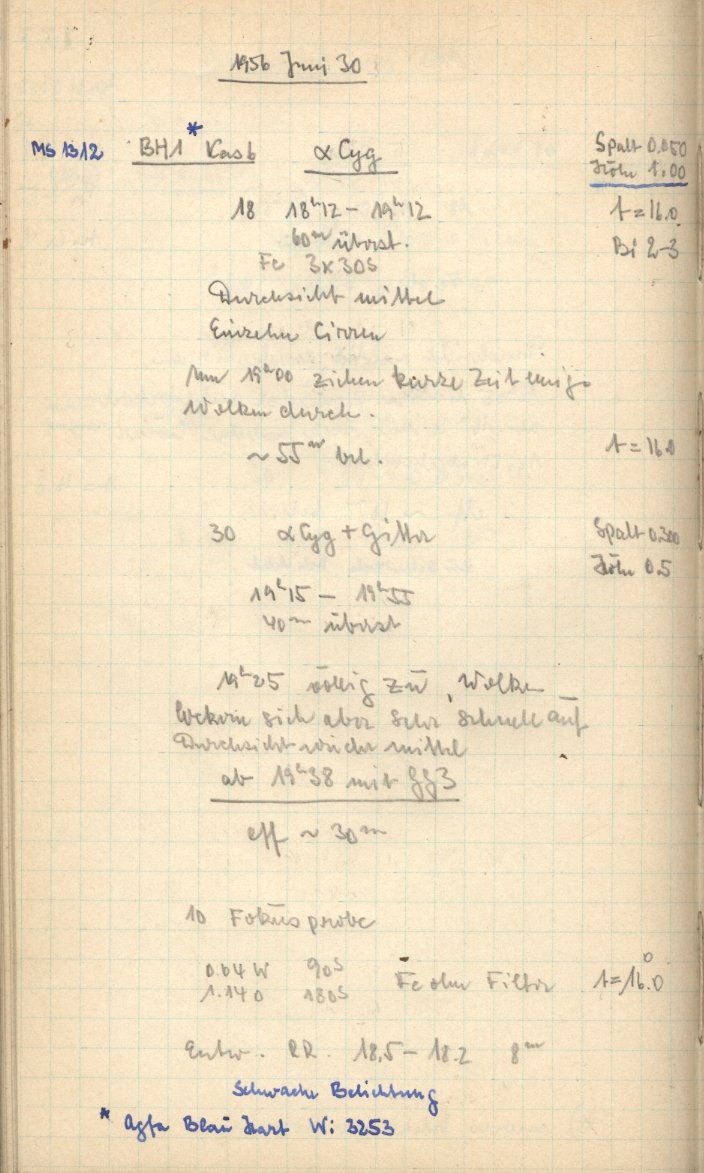 1956 Juni 30
MS 1312 BH1 * Kas 6 α Cyg Spalt 0.050
Höhe 1.00
18 18ʰ12 – 19ʰ12 t = 16.0
60ᵐ überst. Bi 2-3
Fe 3x30s
Durchsicht mittel
Einzelne Cirren
Um 19ʰ00 ziehen kurze Zeit einige
Wolken durch.
~ 55ᵐ bel. t = 16.0
30 α Cyg + Gitter Spalt 0.300
Höhe 0.5
19ʰ15 – 19ʰ55
40ᵐ überst
19ʰ25 völlig zu, Wolken
lockern sich aber sehr schnell auf
Durchsicht wieder mittel
ab 19ʰ38 mit GG3
eff ~ 30ᵐ
10 Fokusprobe
0.64 W 90s
Fe ohne Filter t = 16.0
1.14 0 180s
Entw. RR. 18,5 – 18.2 8ᵐ
Schwache Belichtung
* Agfa Blau Hart Wi 3253